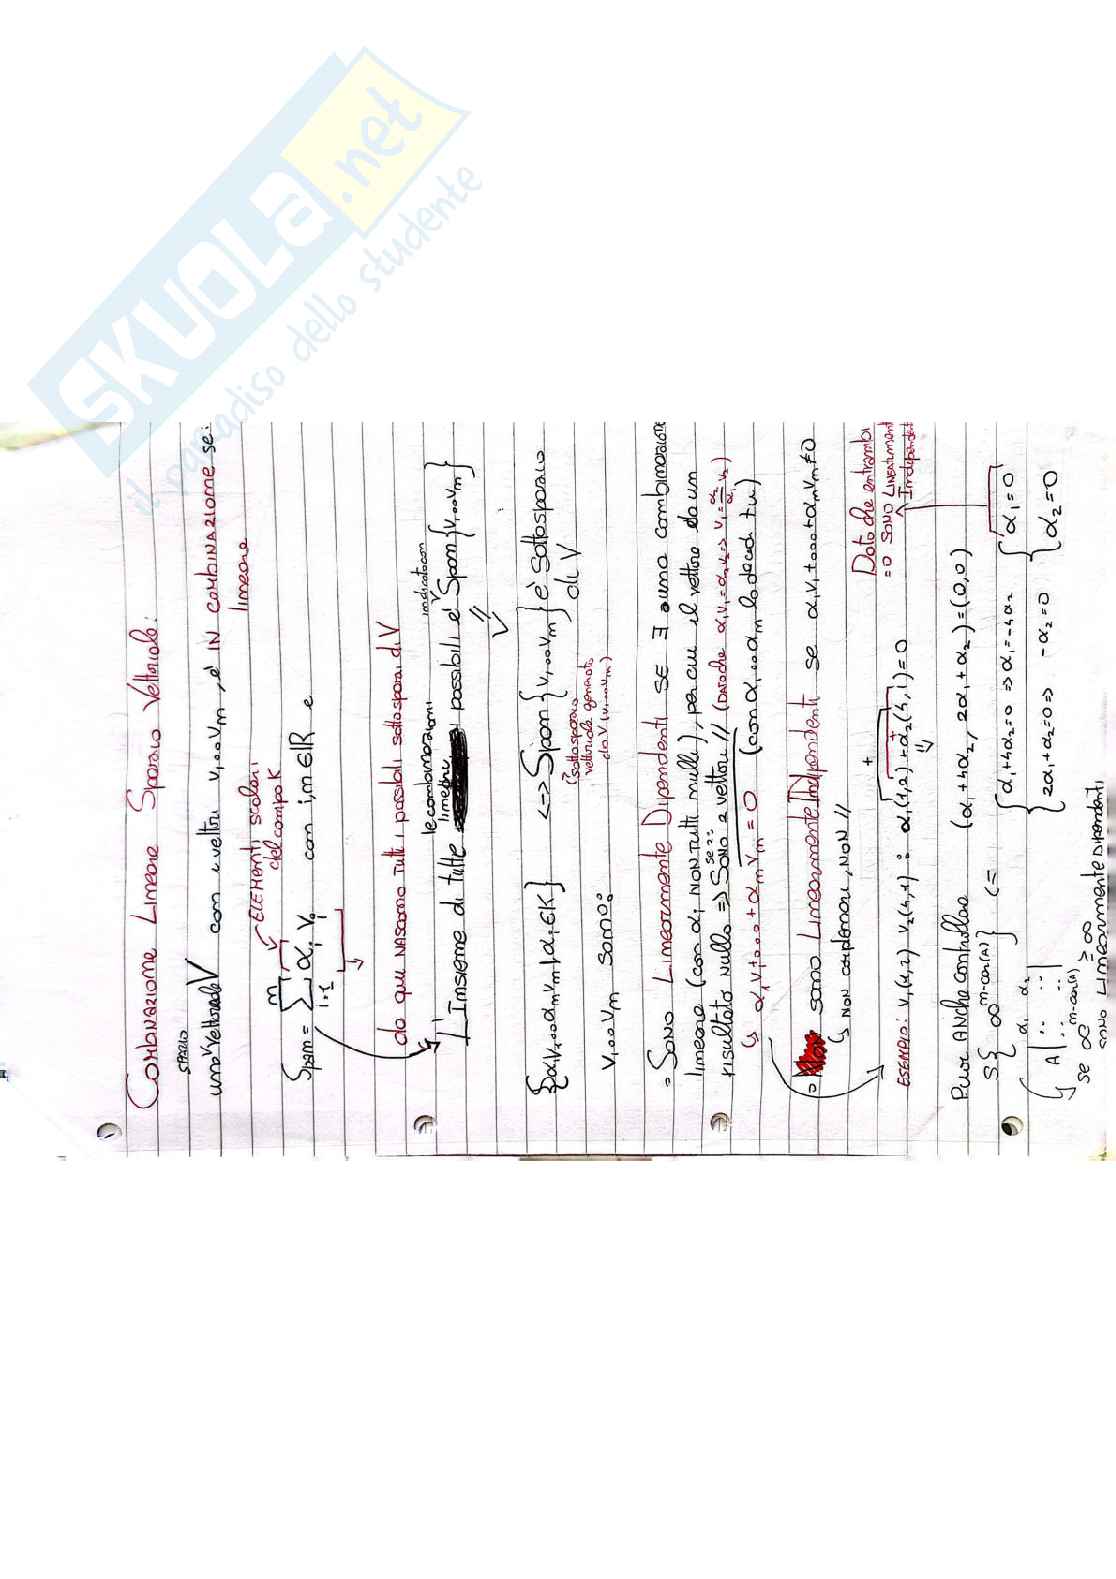 SKUOLA.net
il paradiso dello studente
COMBINAZIONE LINEARE SPAZIO VETTORIALE:
SPAZIO
uno "Vettoriale V con u vettori v₁,∘∘v_m, è IN COMBINAZIONE se:
lineare
ELEMENTI scalari
del campo K
Span = ∑ αᵢ vᵢ con i,m ∈ ℝ e
m
i=1
da qui NASCONO TUTTI i possibili sottospazi di V
le combinazioni
lineari
indicato con
L'insieme di tutte possibili è Span{v₁,∘∘v_m}
{α₁v₁∘∘∘α_m v_m | αᵢ ∈ K} <=> Span{v₁,∘∘v_m} è sottospazio
di V
("sottospazio
vettoriale generato
da V (v₁,∘∘v_m)
v₁,∘∘v_m SONO:
= SONO LINEARMENTE DIPENDENTI SE ∃ una combinazione
lineare (con αᵢ NON tutti nulli), per cui il vettore da un
se ::
risultato nullo => SONO 2 vettori // (DATO che α₁v₁=α₂v₂ => v₁=α₂/α₁ v₂)
α₁v₁+∘∘∘+α_m v_m = 0 (con α₁,∘∘α_m lo decidi tu)
= sono LINEARMENTE INDIPENDENTI se α₁v₁+∘∘∘+α_m v_m ≠ 0
NON complanari, NON //
Dato che entrambi
= 0 SONO LINEARMENT
Independent
ESEMPIO: v₁(1,2) v₂(4,1) : α₁(1,2)+α₂(4,1)=0
Puoi ANche controllare (α₁+4α₂, 2α₁+α₂)=(0,0)
S{∞^(m-car(A))} (=
{α₁+4α₂=0 => α₁=-4α₂ {α₁=0
2α₁+α₂=0 => -α₂=0 {α₂=0
α₁ α₂
A
se ∞^(m-car(A)) ≥ ∞
SONO LINEARMENTE DIPENDENTI